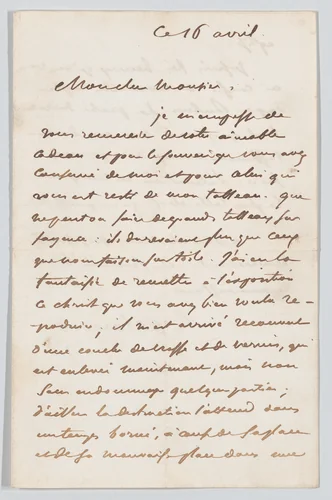 Ce 16 avril.
Mon cher Monsieur,
je m'empresse de
vous remercier de votre aimable
cadeau et pour le souvenir que vous avez
conservé de moi et pour celui qui
vous est resté de mon tableau. que
ne peut on faire de grands tableaux sur
fayence: ils dureraient plus que ceux
que nous faisons sur toile. J'ai eu la
fantaisie de remettre à l'exposition
ce christ que vous avez bien voulu re-
produire; il m'est arrivé recouvert
d'une couche de crasse et de vernis, qui
est enlevé maintenant, mais non
sans endommager quelque partie;
d'ailleurs la destruction l'attend dans
un temps borné, à cause de sa place
et de sa mauvaise place dans une